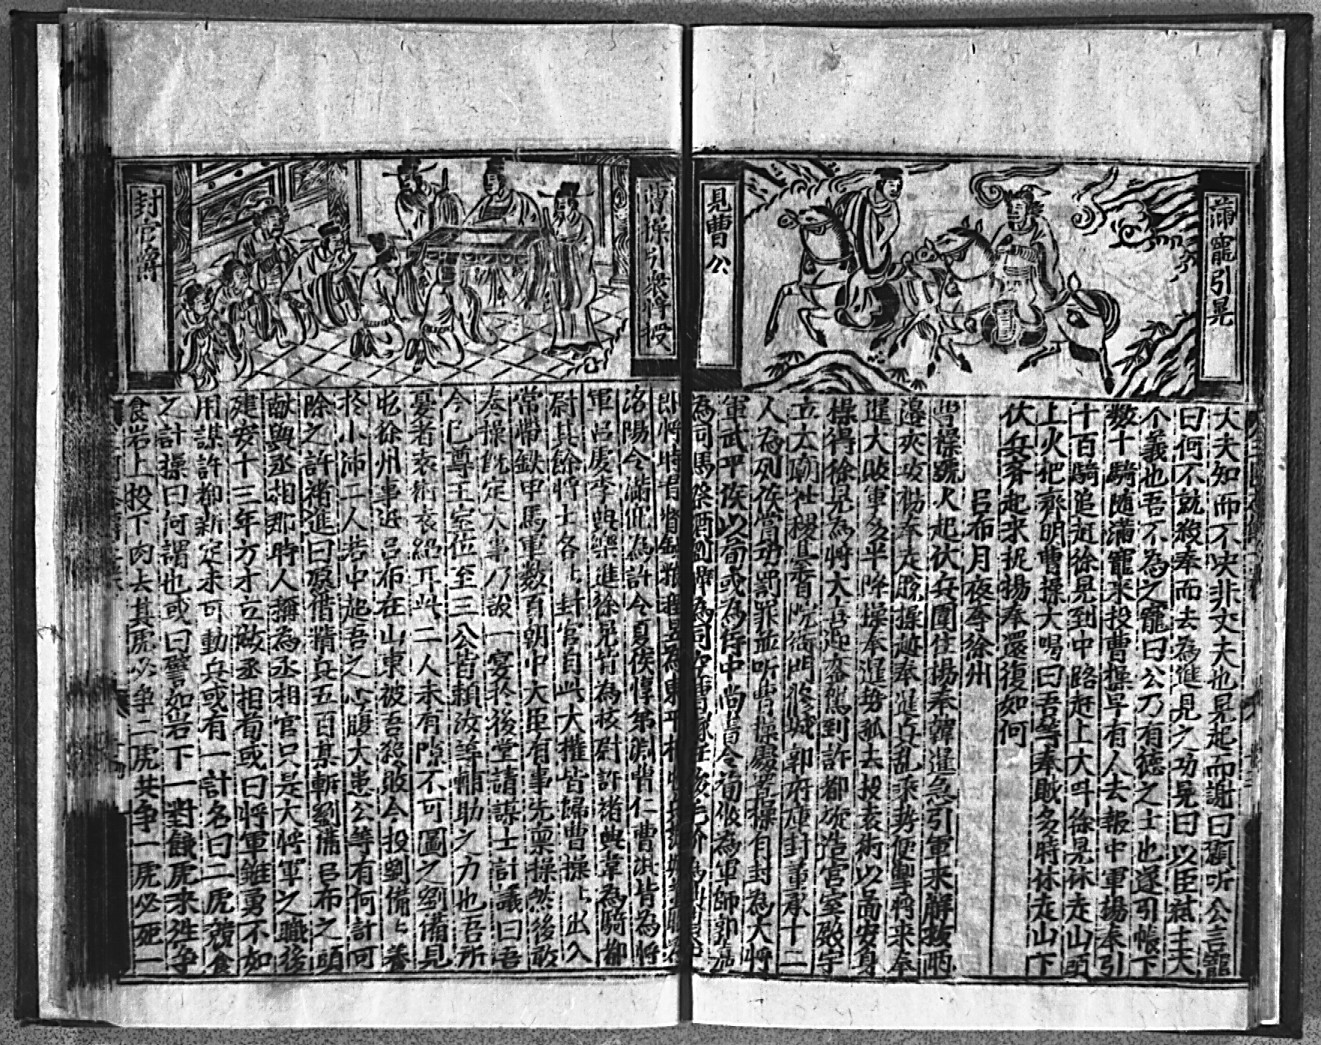 滿寵引晃
見曹公
大夫知而不决非丈夫也晃起而謝曰願听公言寵
曰何不就殺奉而去為進見之功晃曰以臣弒主大
不義也吾不為之寵曰公乃有德之士也遂引帳下
数十騎隨滿寵來投曹操早有人去報中軍揚奉引
十百騎追赶徐晃到中路赶上大呌徐晃休走山頭
上火把齊明曹操大喝曰吾等奉賊多時休走山下
伏兵齐起來捉揚奉還復如何
吕布月夜奪徐州
操號火起伏兵圍住揚奉韓暹急引軍來解救兩
邉夾攻揚奉走脫操趂奉暹兵乱乘势便擊將來奉
暹大敗軍多半降操奉暹势孤去投袁術以啚安身
操得徐晃為將大喜迎奎駕到許都旋造宮室殿宇
立太廟社稷臺省院衙門修城郭府庫封董承十二
人為列侯賞功罰罪並听曹操處置操自封為大將
軍武平侯以荀或為侍中尚書令荀攸為軍師郭嘉
為司馬祭酒劉曄為司空
洛陽令滿寵為許令夏侯惇弟淵曹仁曹洪皆為將
軍吕虔李典樂進徐晃皆為校尉許禇典韋為騎都
尉其餘將士各々封官自此大權皆歸曹操々出入
常帶鉄甲馬軍数百朝中大臣有事先稟操然後敢
奏操既定大事乃設一宴於後堂請謀士計議曰吾
今已尊王室位至三公皆賴汝等輔助之力也吾所
憂者袁術袁紹耳此二人未有隙不可圖之劉俻見
屯徐州事近吕布在山東被吾殺敗今投劉備々養
於小沛二人若中起吾之心腹大患公等有何計可
除之許褚進曰愿借精兵五百某斬劉俻吕布之頭
献與丞相那時人稱為丞相官只是大將軍之職後
建安十三年方才立做丞相荀或曰將軍雖勇不如
用謀許都新定未可動兵或有一計名曰二虎競食
之計操曰何謂也或曰譬如岩下一對餓虎來徃爭
食岩上投下肉去其虎必爭二虎共爭一虎必死一
曹操引衆將授
封官爵